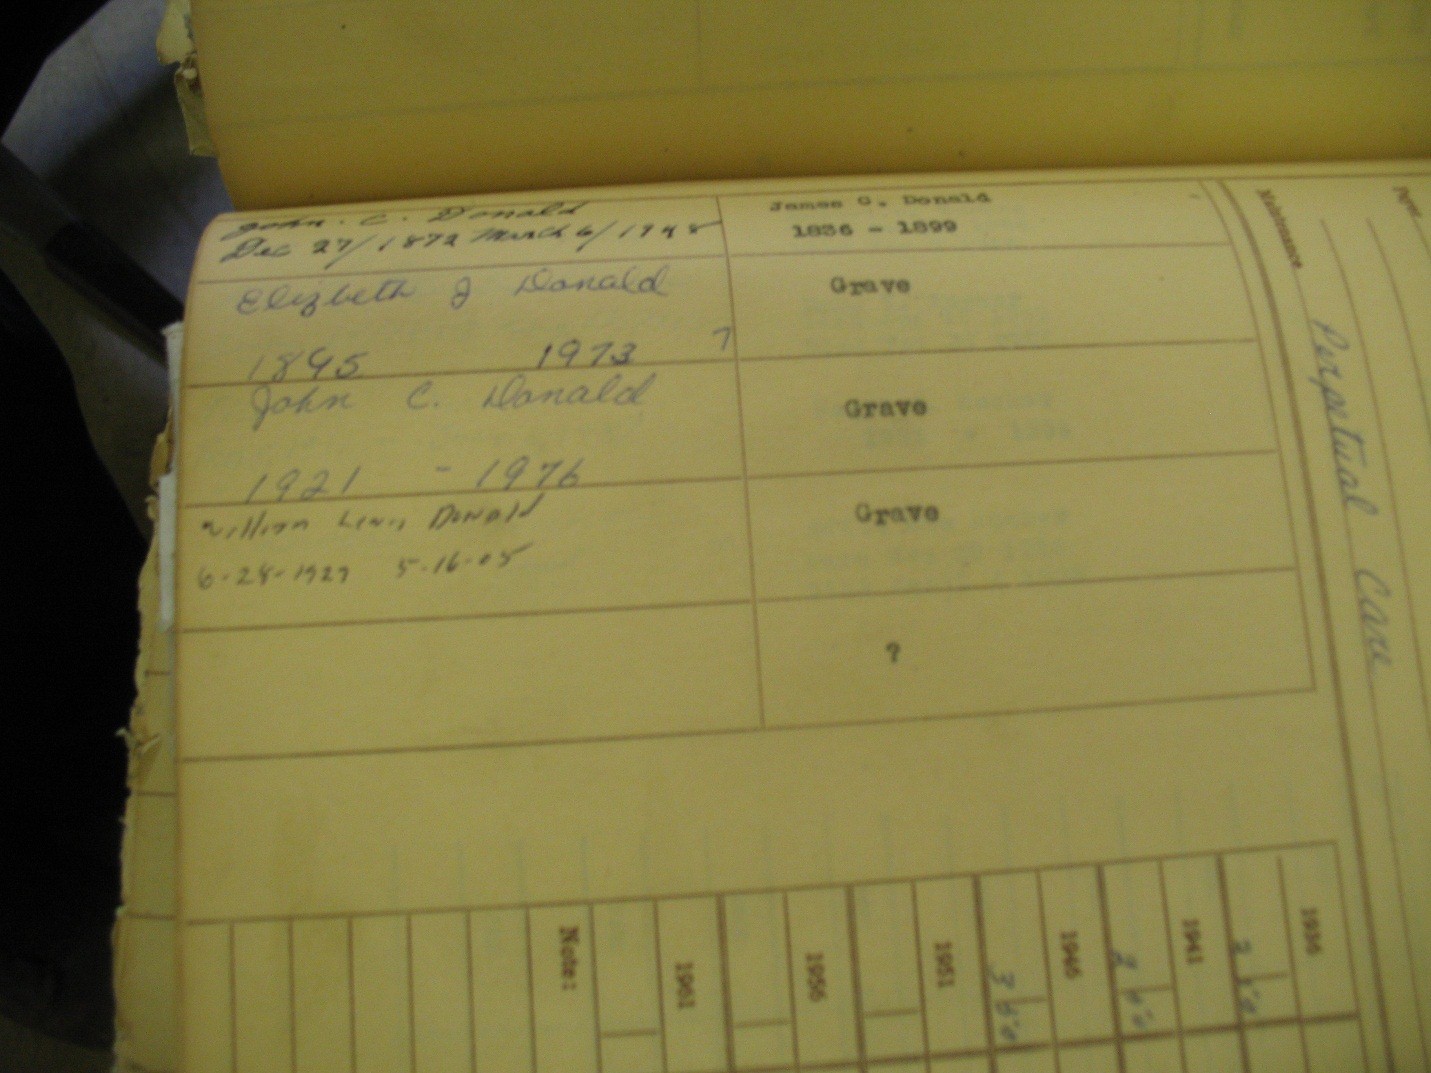 John. C. Donald
Dec 27/1872 March 6/1948
James G. Donald
1836 - 1899
Elizbeth J Donald
1895 1973 7
Grave
John C. Donald
1921 - 1976
Grave
William Lewis Donald
6-28-1929 5-16-05
Grave
?
Maintenance
Perpetual Care
Note:
1961
1956
1951
1946
1941
1936